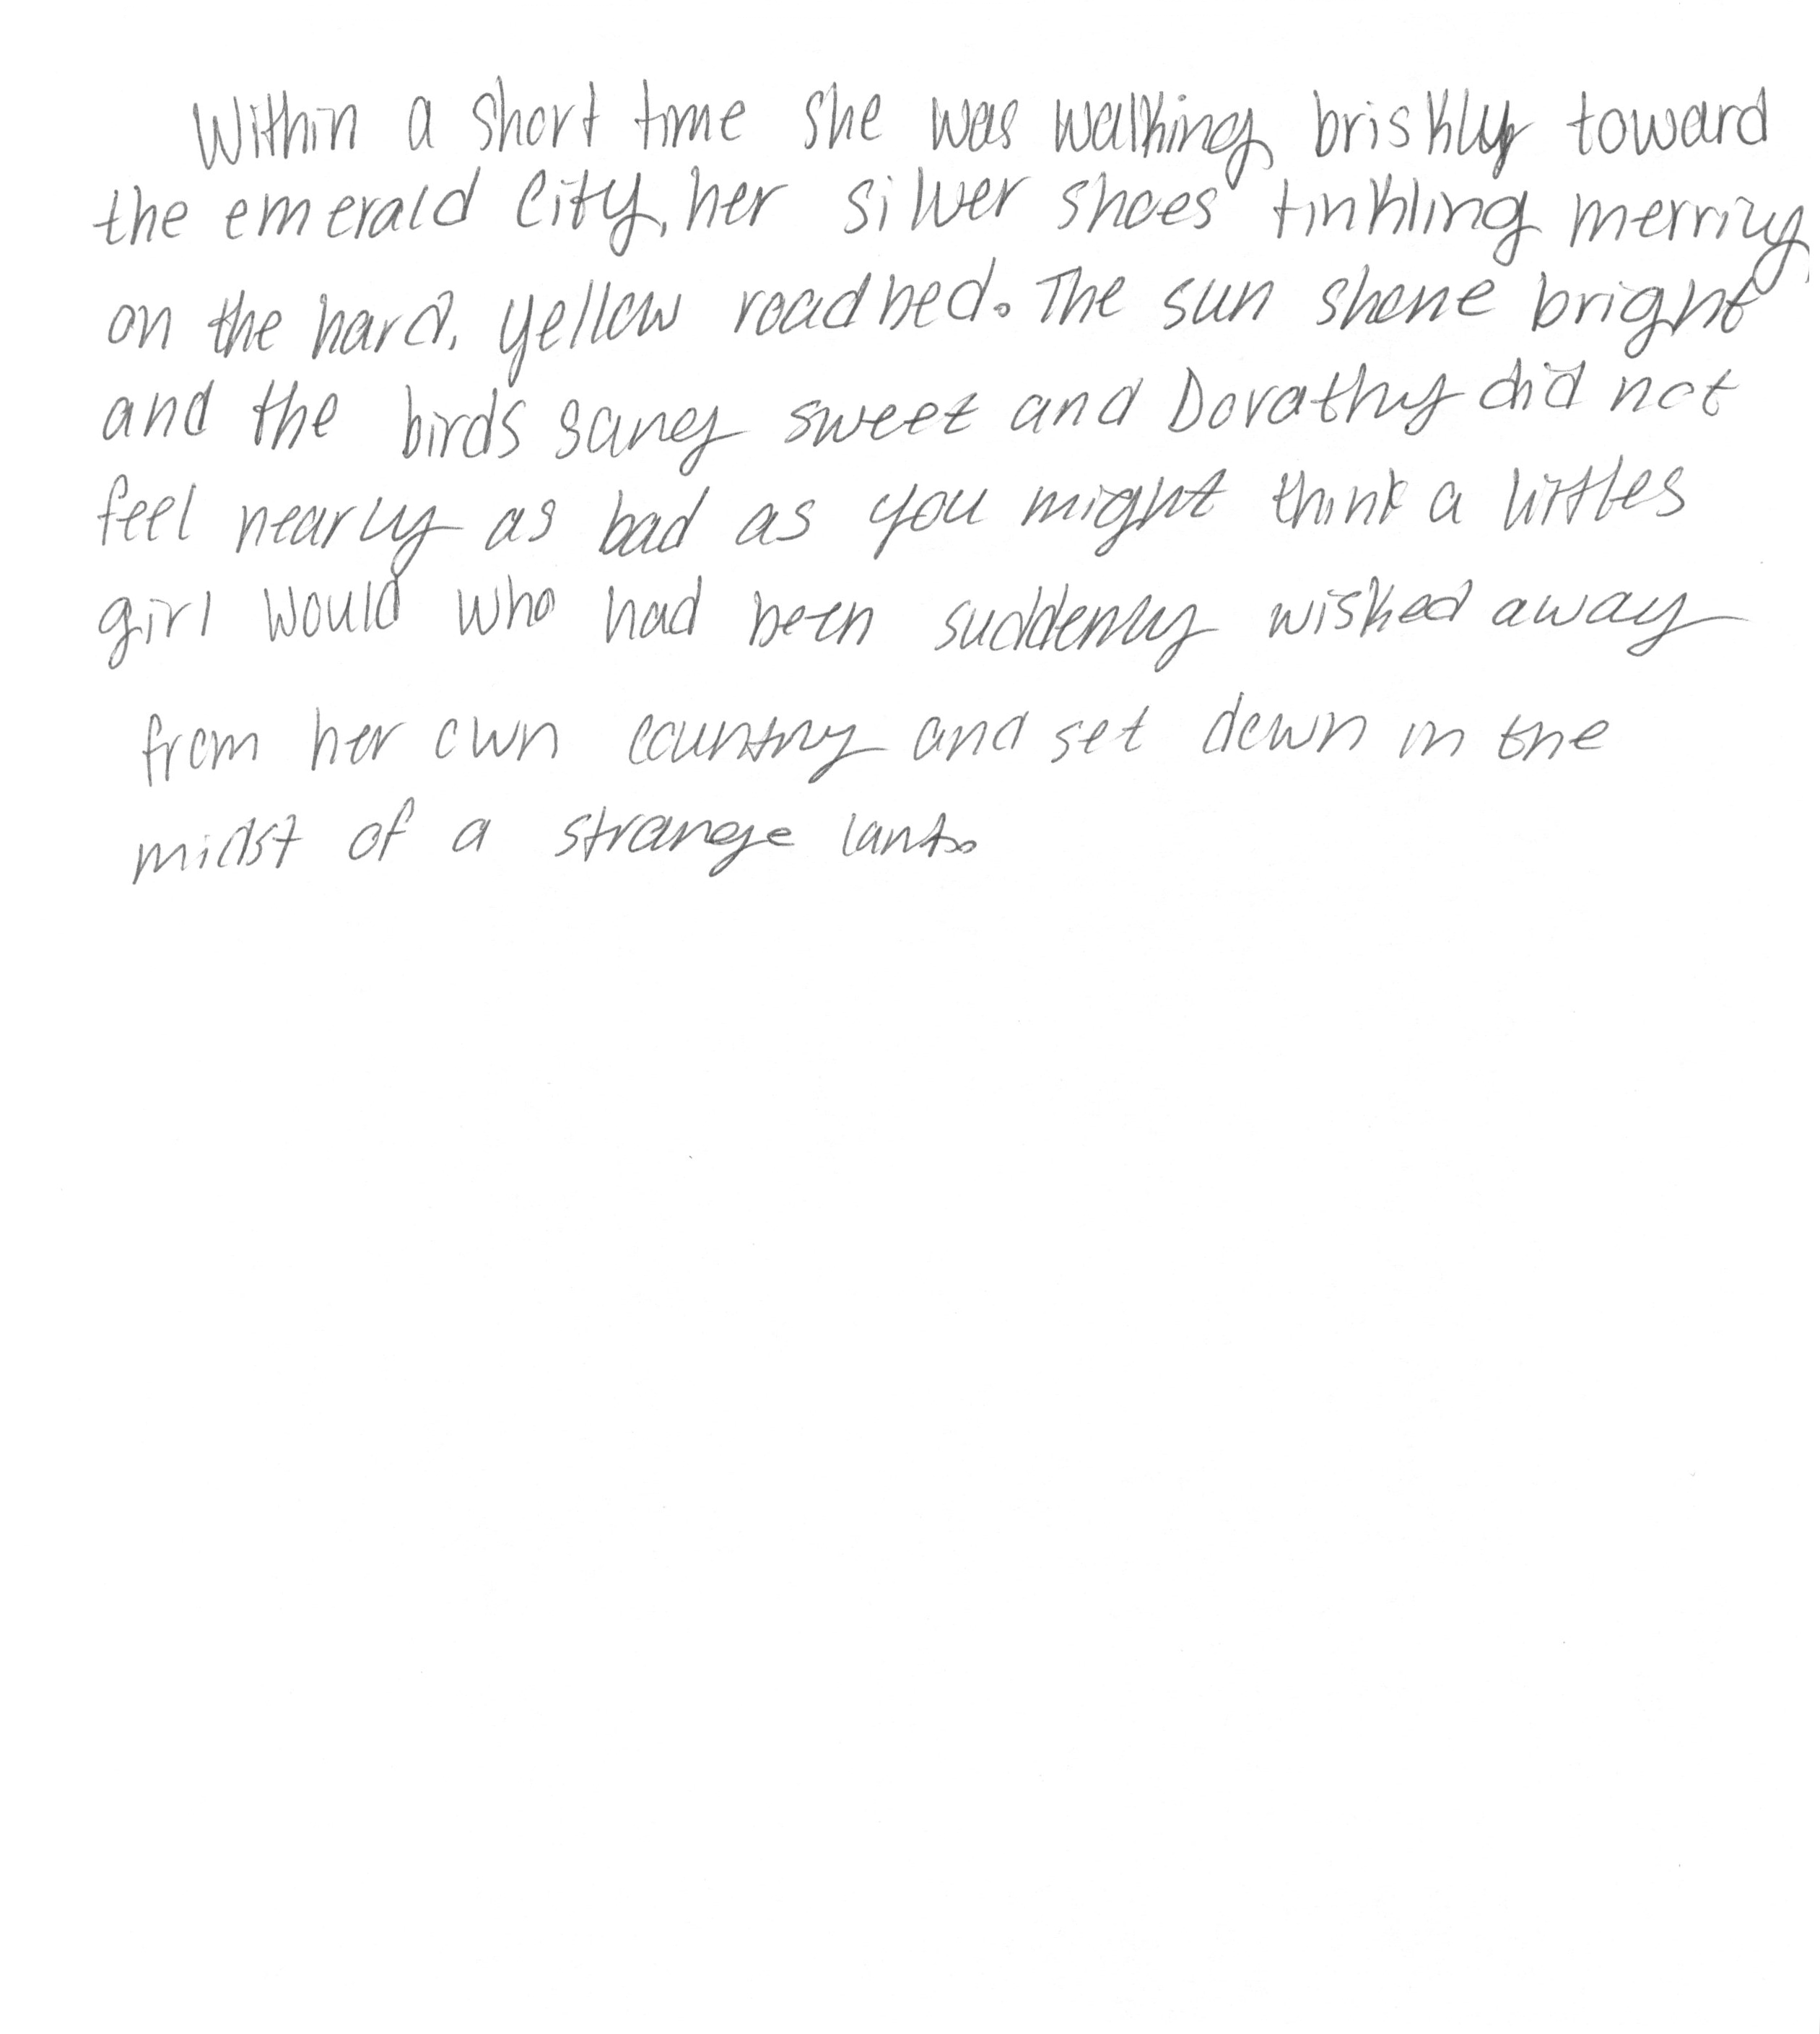 Within a short time she was walking briskly toward
the emerald City, her silver shoes tinkling merrily
on the hard, yellow roadbed. The sun shone bright
and the birds sang sweet and Dorathy did not
feel nearly as bad as you might think a littles
girl would who had been suddenly wisked away
from her own country and set down in the
midst of a strange land.